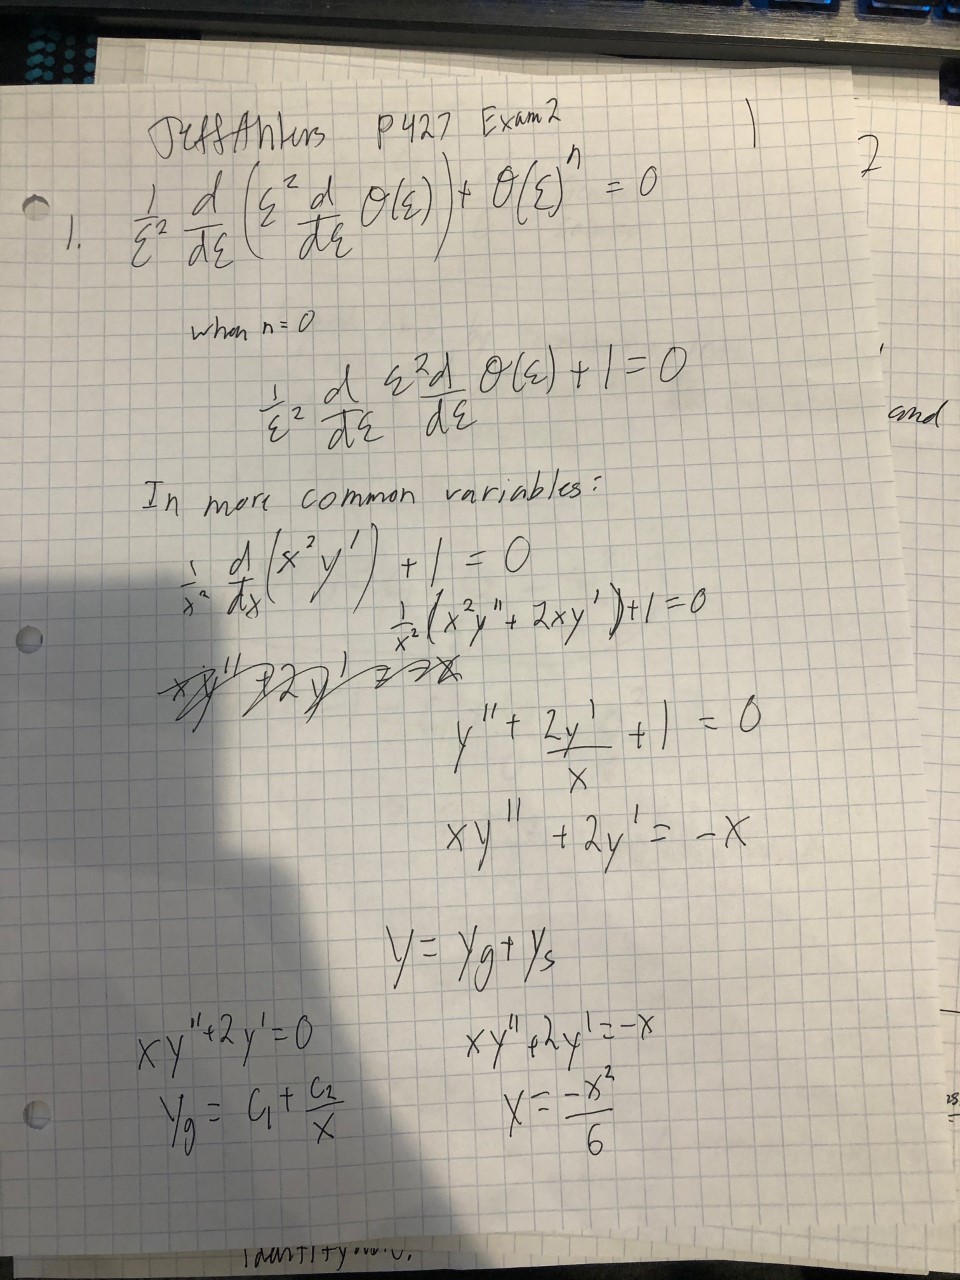 Jeff Ahlers P427 Exam 2 1
2
1. 1/ξ² d/dξ (ξ² d/dξ θ(ξ)) + θ(ξ)ⁿ = 0
when n=0
1/ξ² d/dξ ξ² d/dξ θ(ξ) + 1 = 0
and
In more common variables:
1/x² d/dx (x² y') + 1 = 0
1/x² (x² y'' + 2xy') + 1 = 0
y'' + 2y'/x + 1 = 0
xy'' + 2y' = -x
y = yg + ys
xy'' + 2y' = 0 xy'' + 2y' = -x
yg = C₁ + C₂/x y = -x²/6